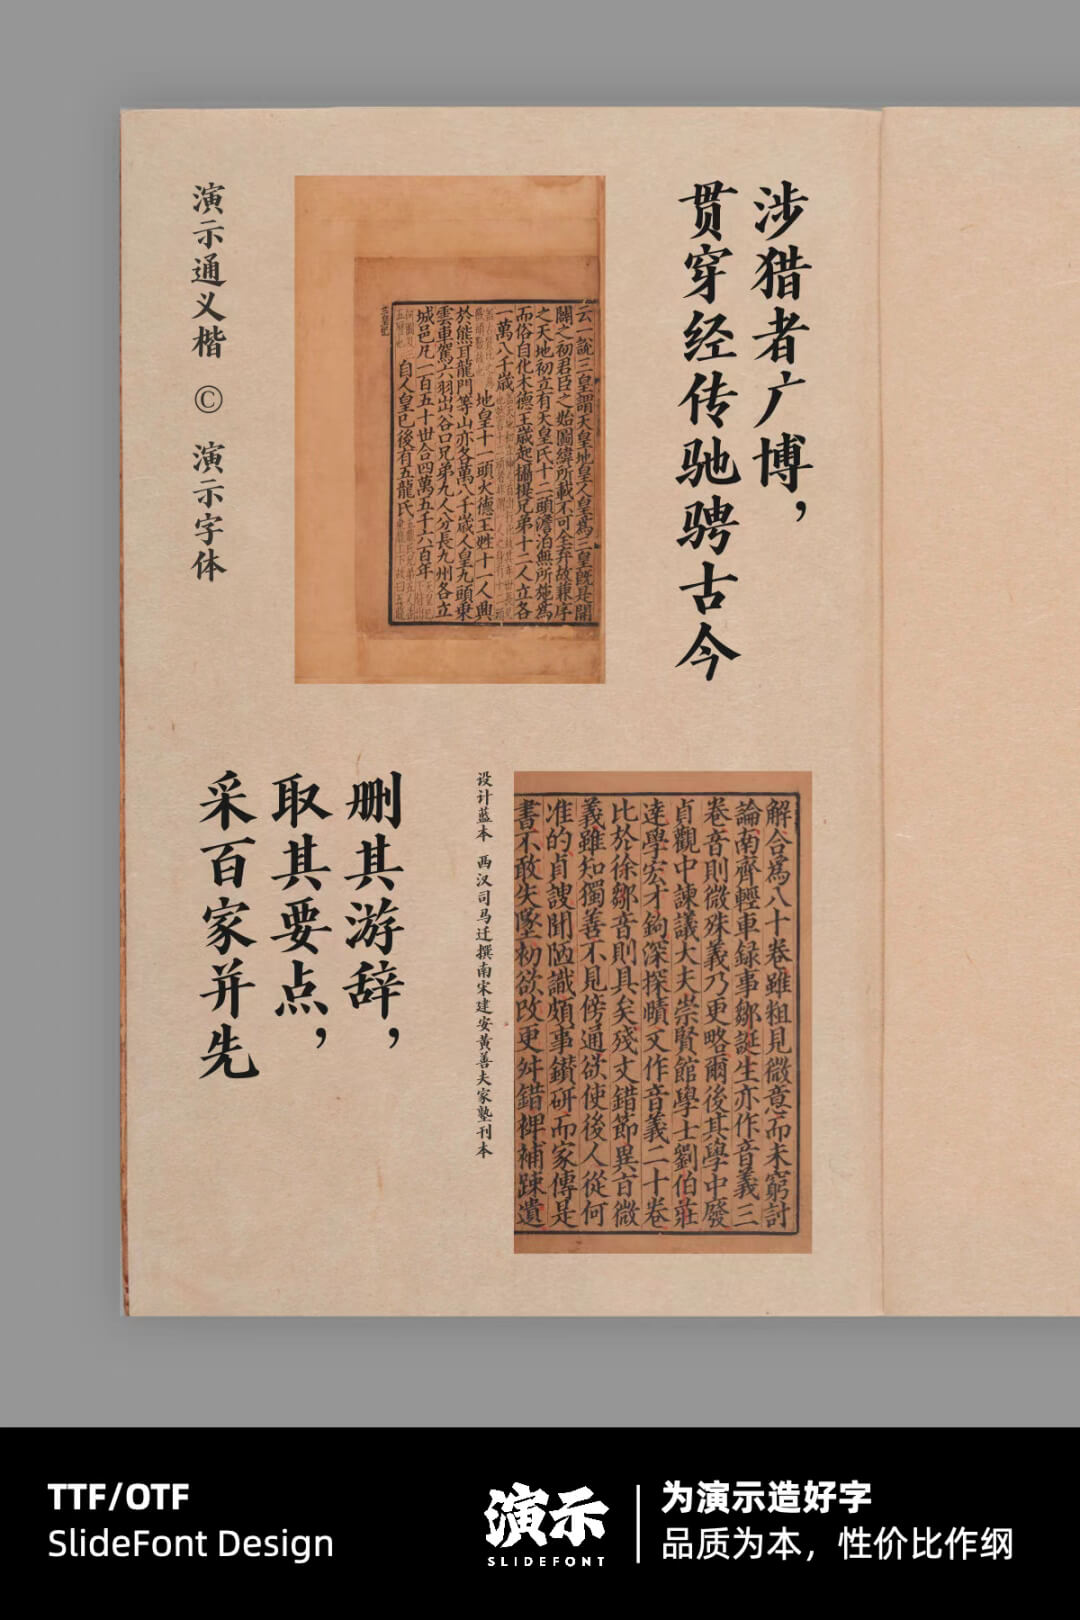 涉猎者广博，
贯穿经传驰骋古今
云一說三皇謂天皇地皇人皇爲三皇既是開
闢之初君臣之始圖緯所載不可全弃故兼序
之天地初立有天皇氏十二頭澹泊無所施爲
而俗自化木德王歲起攝提兄弟十二人立各
一萬八千歲
地皇十一頭火德王姓十一人興
於熊耳龍門等山亦各萬八千歲人皇九頭乗
雲車駕六羽出谷口兄弟九人分長九州各立
城邑凡一百五十世合四萬五千六百年
自人皇已後有五龍氏
演示通义楷 © 演示字体
解合爲八十卷雖粗見微意而未窮討
論南齊輕車録事鄒誕生亦作音義三
卷音則微殊義乃更略爾後其學中廢
貞觀中諫議大夫崇賢館學士劉伯莊
達學宏才鉤深探賾又作音義二十卷
比於徐鄒音則具矣殘文錯節異音微
義雖知獨善不見傍通欲使後人從何
准的貞謏聞陋識頗事鑚研而家傳是
書不敢失墜初欲改更舛錯裨補踈遺
设计蓝本 西汉司马迁撰南宋建安黄善夫家塾刊本
删其游辞，
取其要点，
采百家并先
TTF/OTF
SlideFont Design
演示
SLIDEFONT
为演示造好字
品质为本，性价比作纲